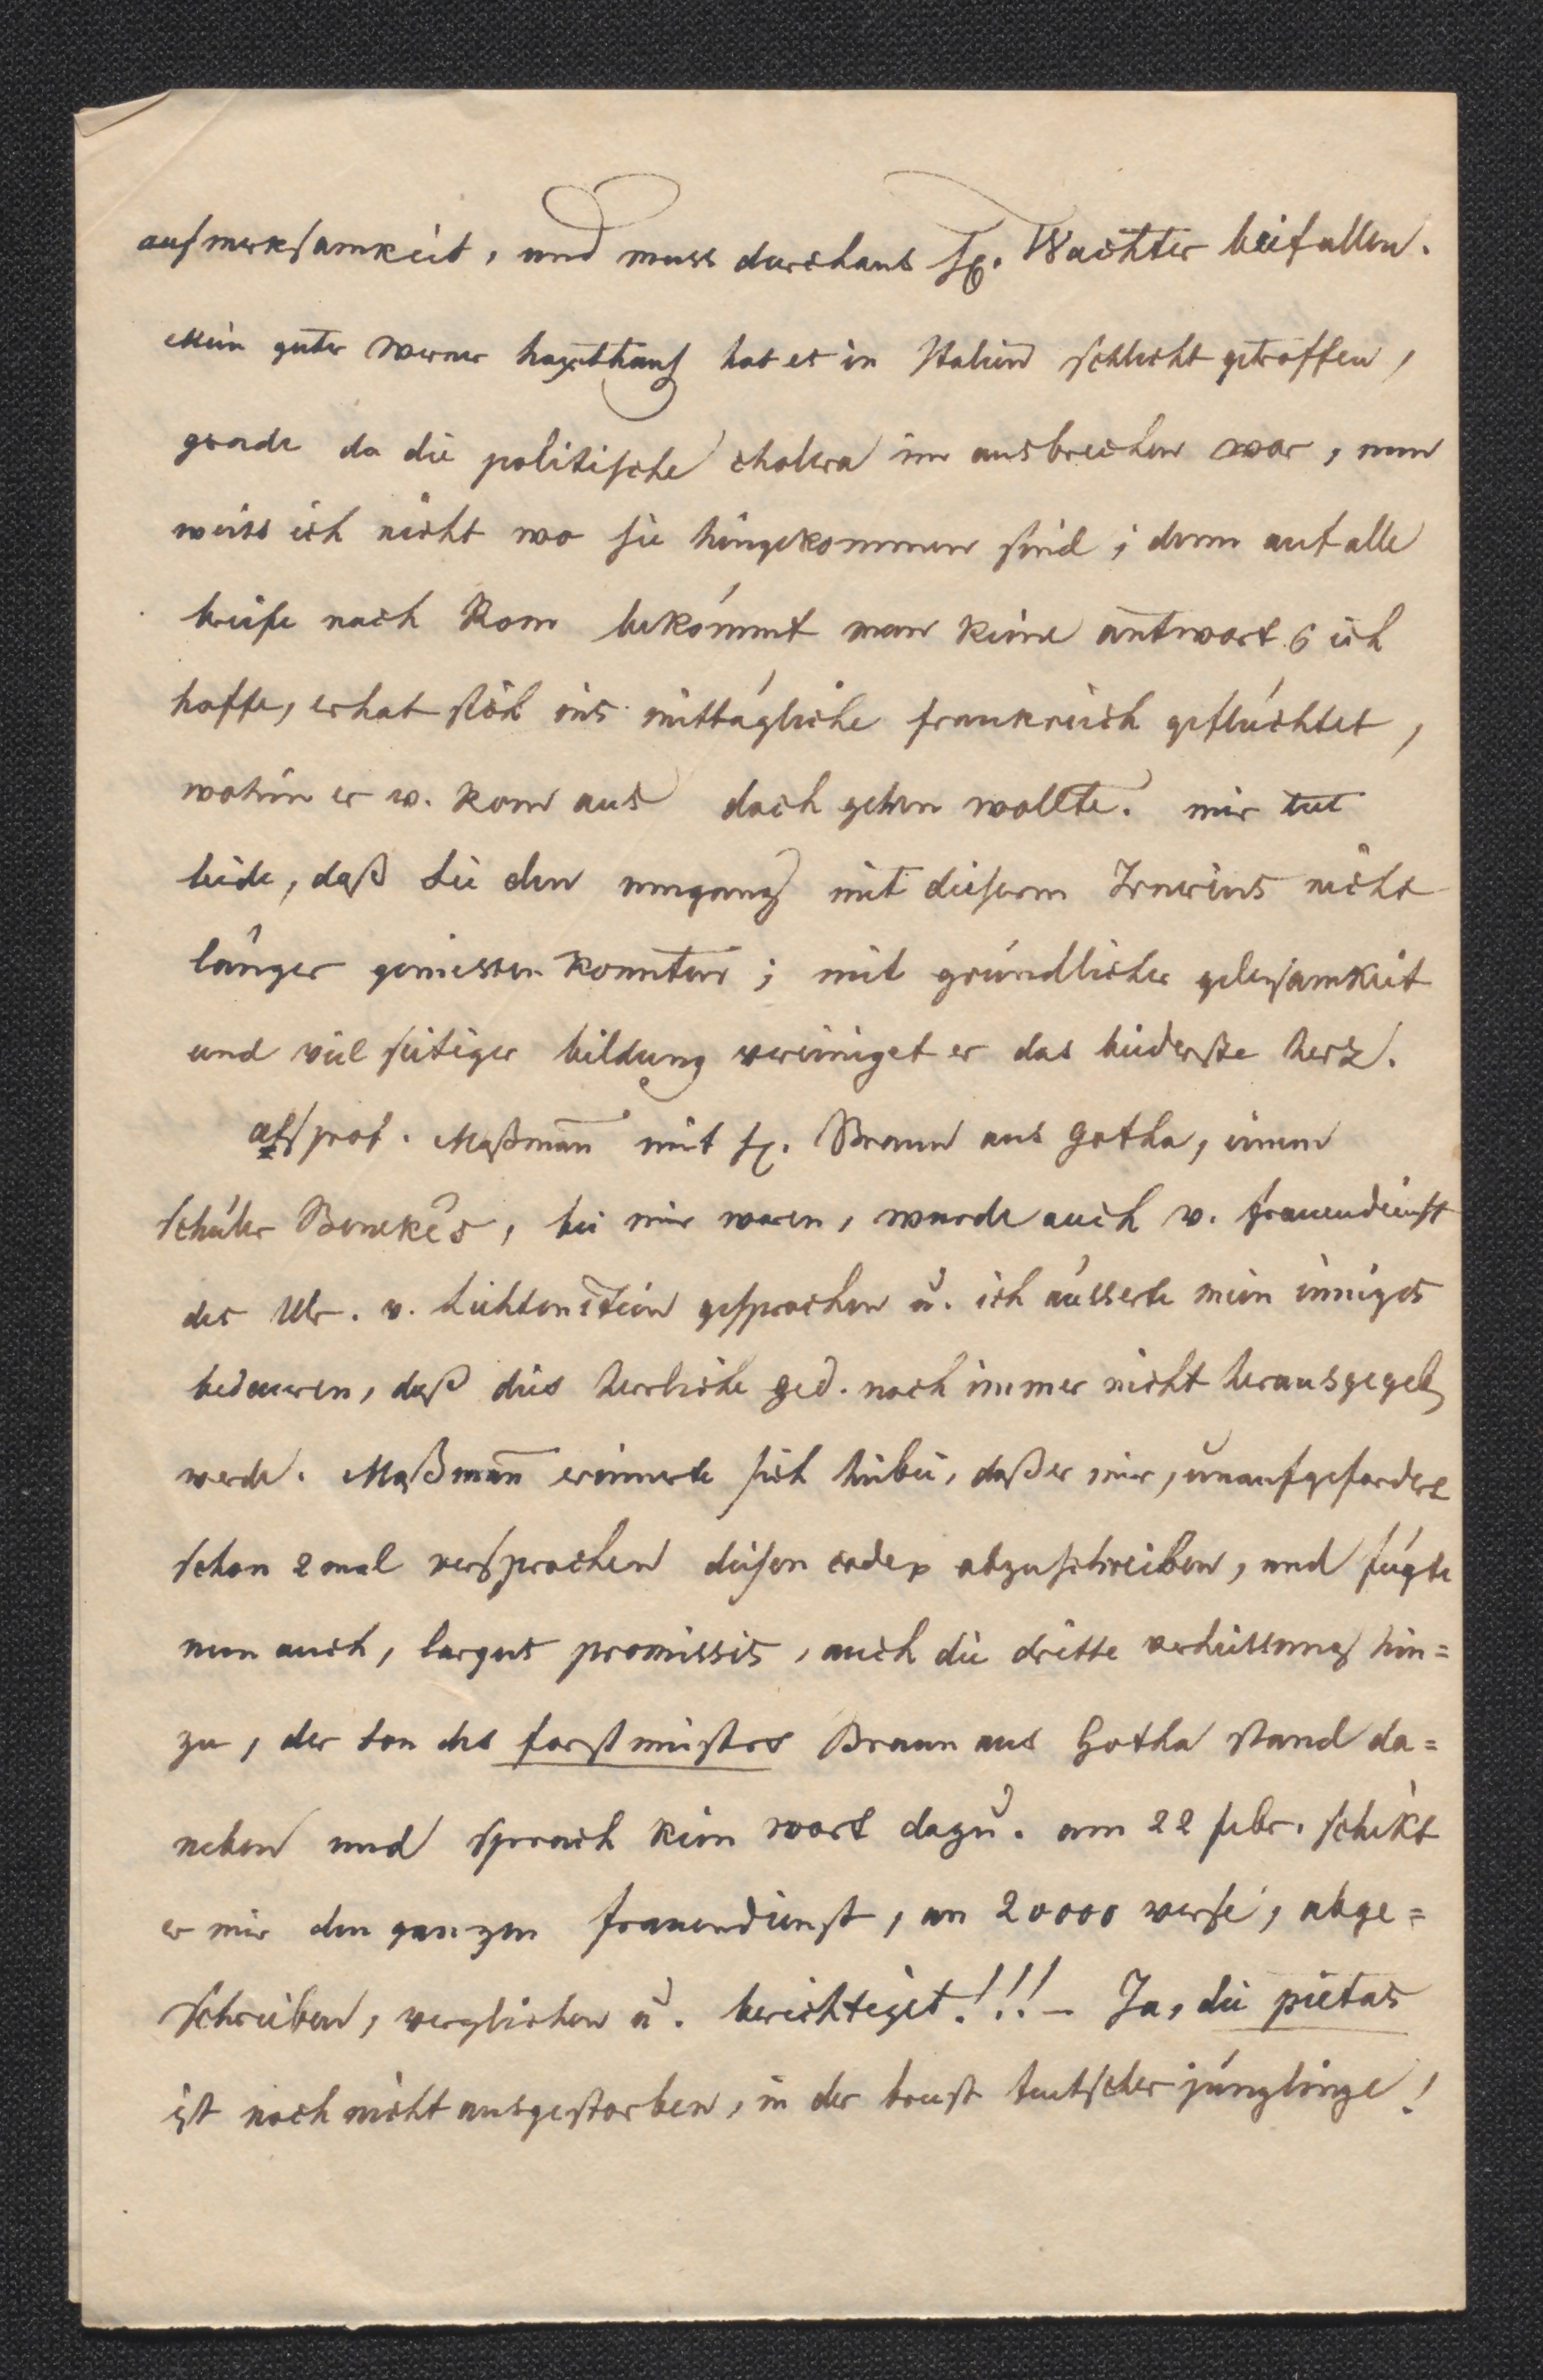 aufmerksamkeit, und muss durchaus H. Wachter beifallen.
Mein guter Werner haxthaus hat es in Italien schlecht getroffen,
grade da die politische cholera im ausbrechen war, nun
weiss ich nicht wo sie hingekommen sind; denn auf alle
briefe nach Rom bekömmt man keine antwort. ich
hoffe, er hat sich ins mittägliche frankreich geflüchtet,
wohin er v. Rom aus doch gehen wollte. mir tut
leide, daß Sie den umgang mit diesem Irnerius nicht
länger geniessen konnten; mit gründlicher gelersamkeit
und viel seitiger bildung vereiniget er das biderste herz.
als prof. Maßmañ mit H. Braun aus Gotha, einem
schüler Beneke's, bei mir waren, wurde auch v. frauendienst
des Ulr. v. Lichtenstein gesprochen u. ich äusserte mein inniges
bedauren, daß dies herrliche ged. noch immer nicht herausgegeb
werde. Maßmañ erinnerte sich hiebei, daß er mir, unaufgefordert
schon 2 mal versprochen diesen codex abzuschreiben, und fügte
nun auch, largus promissis, auch die dritte verheissung hin=
zu, der son des forstmeisters Braun aus Gotha stand da=
neben und sprach kein wort dazu. am 22 febr. schikt
er mir den ganzen frauendienst, an 20000 verse, abge=
schrieben, verglichen u. berichtiget!!! – Ja, die pietas
ist noch nicht ausgestorben, in der brust teutscher jünglinge!